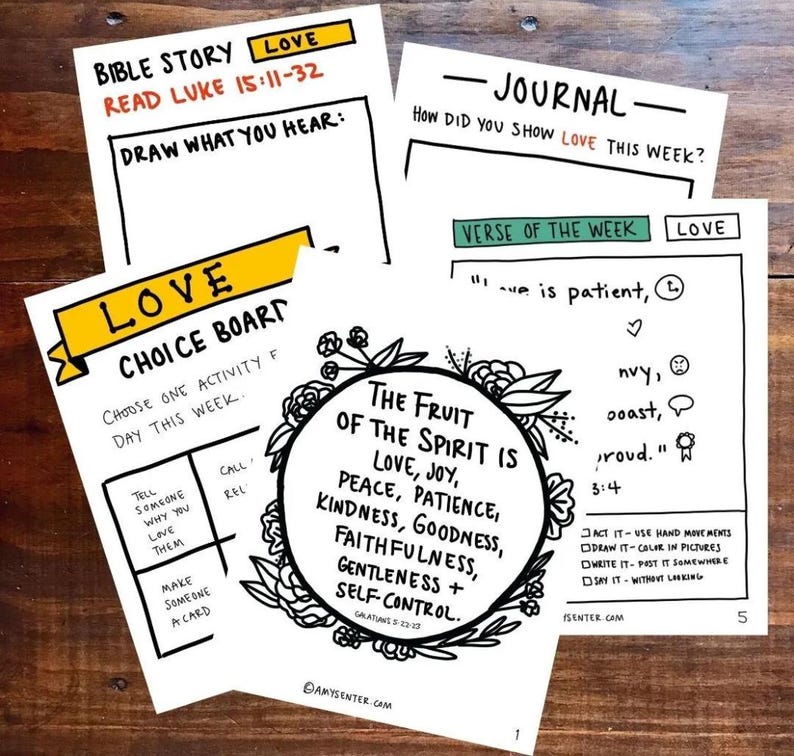 BIBLE STORY LOVE
READ LUKE 15:11-32
DRAW WHAT YOU HEAR:
JOURNAL
HOW DID YOU SHOW LOVE THIS WEEK?
VERSE OF THE WEEK LOVE
is patient,
3:4
ACT IT - USE HAND MOVEMENTS
DRAW IT - COLOR IN PICTURES
WRITE IT - POST IT SOMEWHERE
SAY IT - WITHOUT LOOKING
5
LOVE
CHOICE BOARD
CHOOSE ONE ACTIVITY
DAY THIS WEEK.
TELL
SOMEONE
WHY YOU
LOVE
THEM
CALL
MAKE
SOMEONE
A CARD
THE FRUIT
OF THE SPIRIT IS
LOVE, JOY,
PEACE, PATIENCE,
KINDNESS, GOODNESS,
FAITHFULNESS,
GENTLENESS +
SELF-CONTROL.
GALATIANS 5:22-23
©AMYSENTER.COM
1